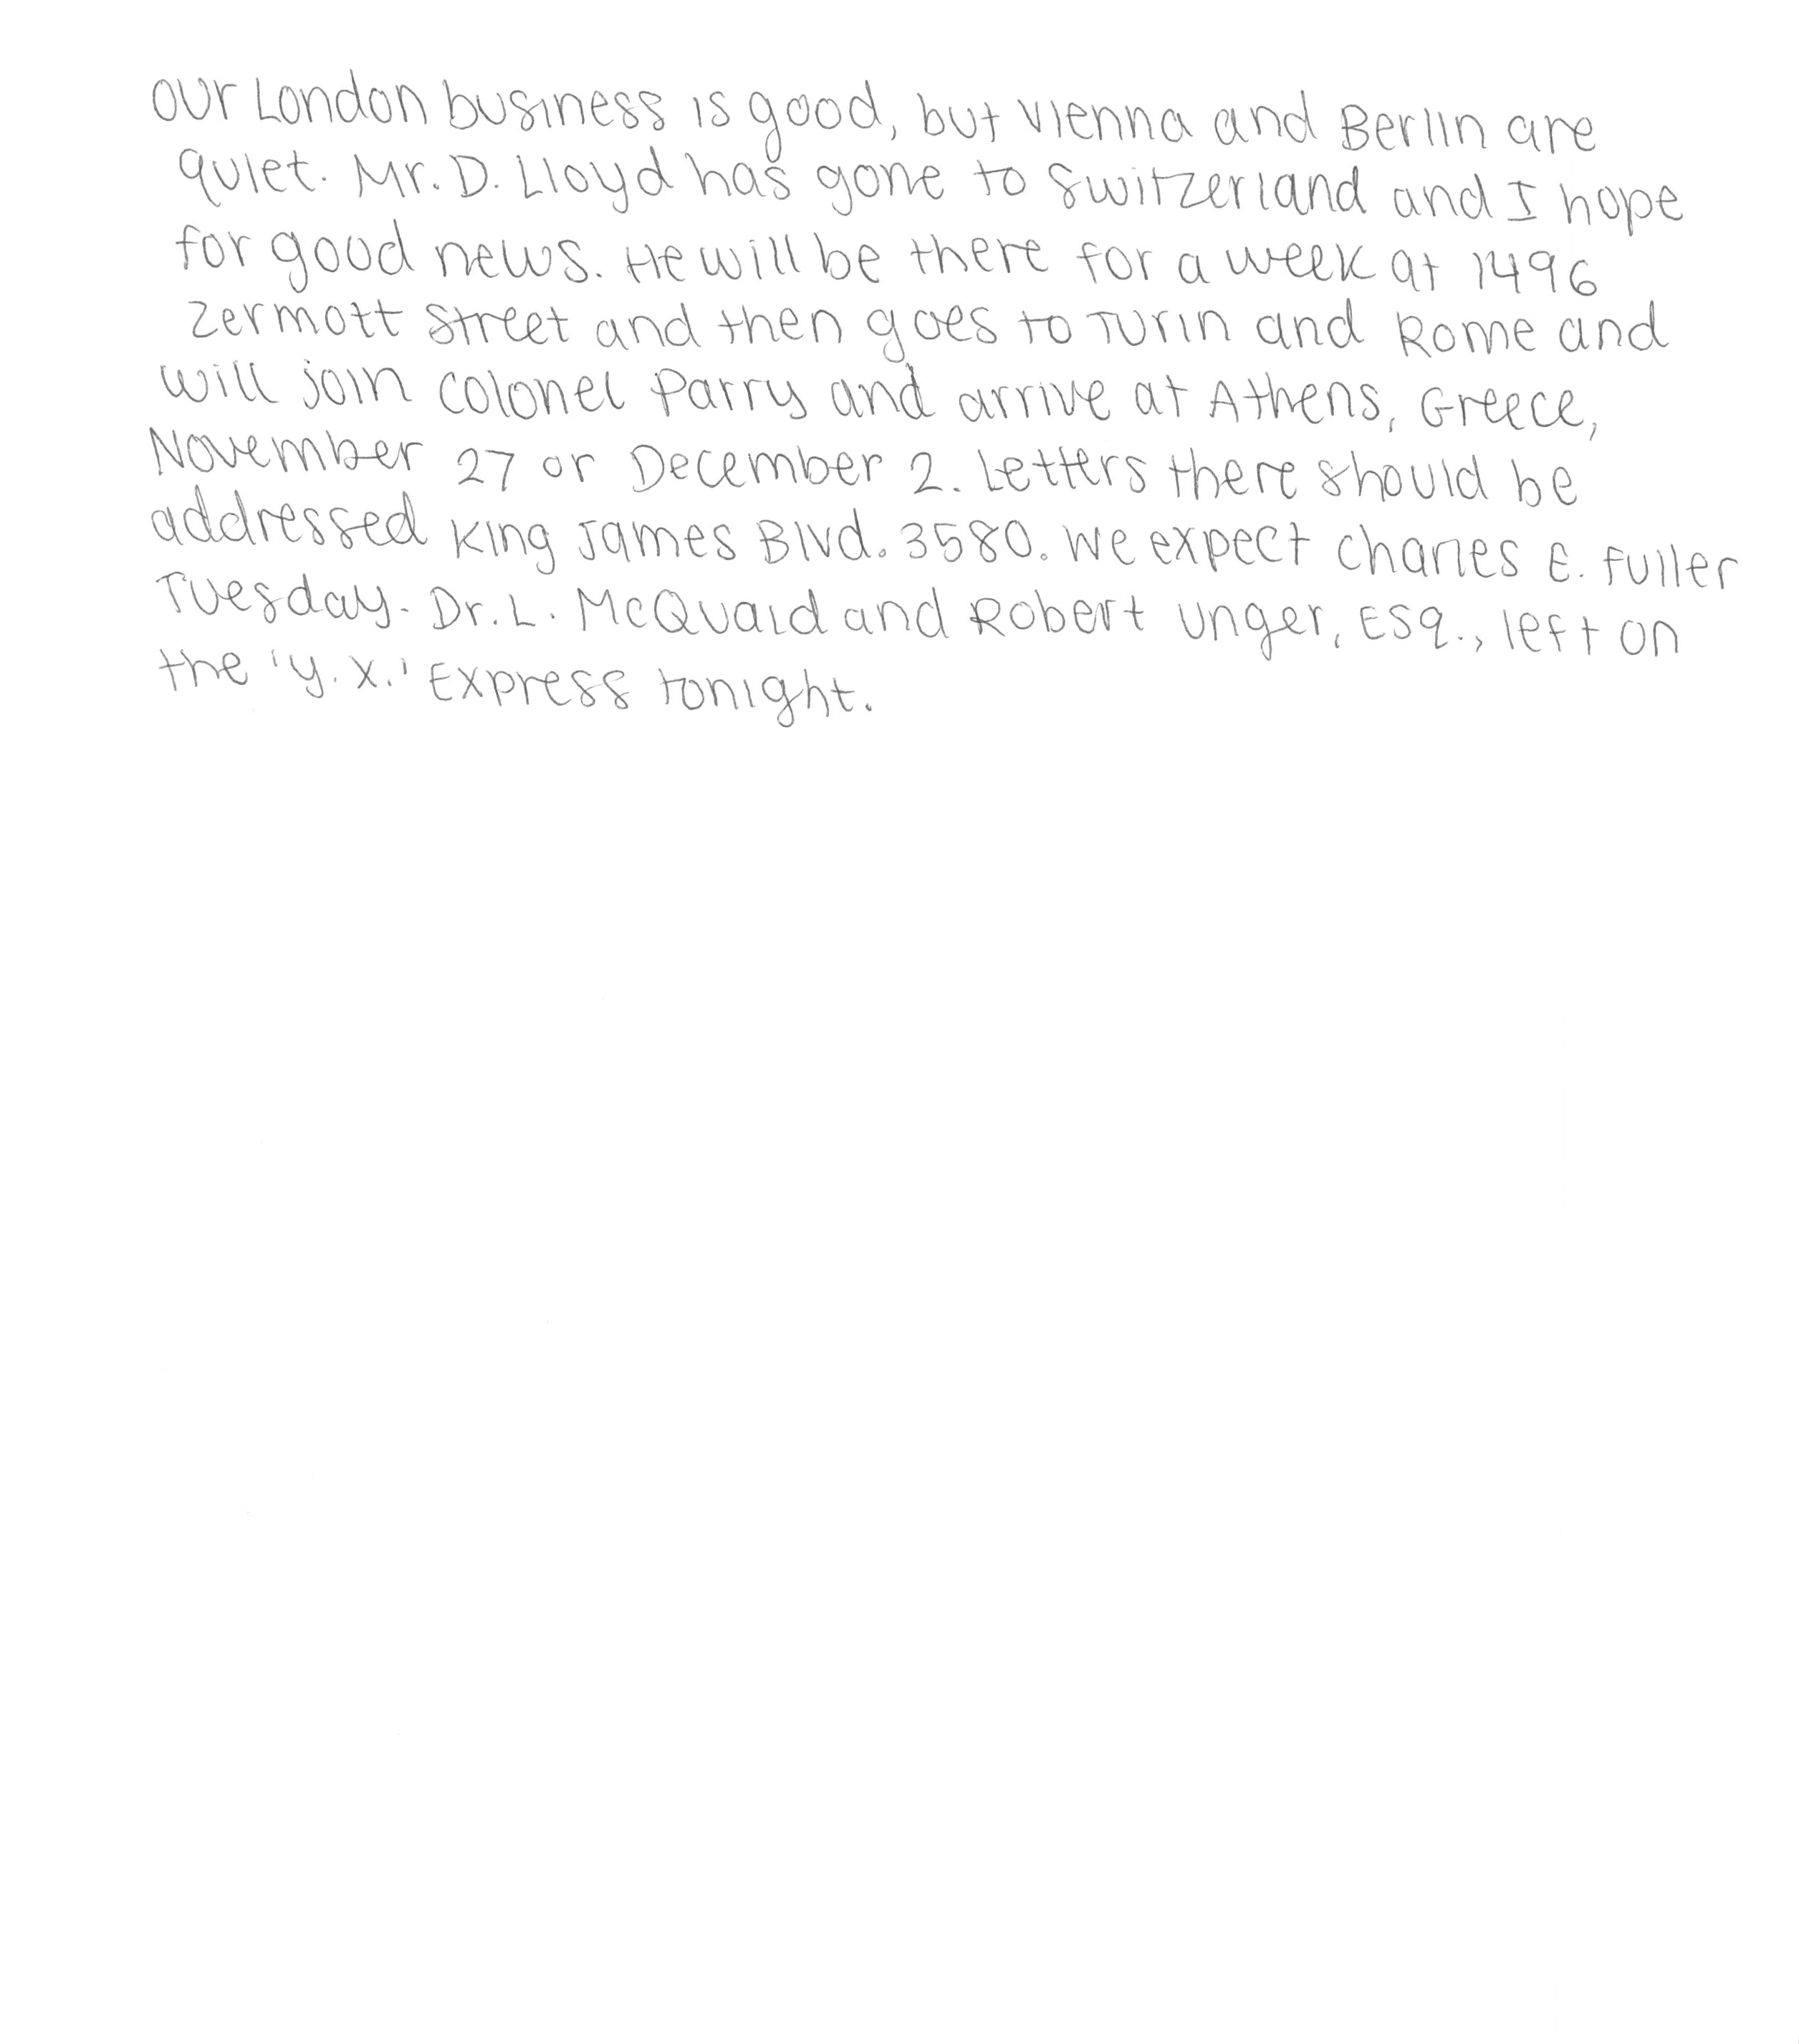 Our London business is good, but Vienna and Berlin are
quiet. Mr. D. Lloyd has gone to Switzerland and I hope
for good news. He will be there for a week at 1496
Zermott Street and then goes to Turin and Rome and
will join Colonel Parry and arrive at Athens, Greece,
November 27 or December 2. Letters there should be
addressed King James Blvd. 3580. We expect Charles E. Fuller
Tuesday. Dr. L. McQuaid and Robert Unger, Esq., left on
the 'Y.X.' Express tonight.